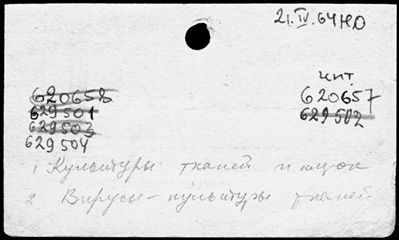 21.IV.64 НО
чит.
620658
629501
629503
629504
620657
629502
1 Культуры тканей и клеток
2 Вирусы - культуры тканей